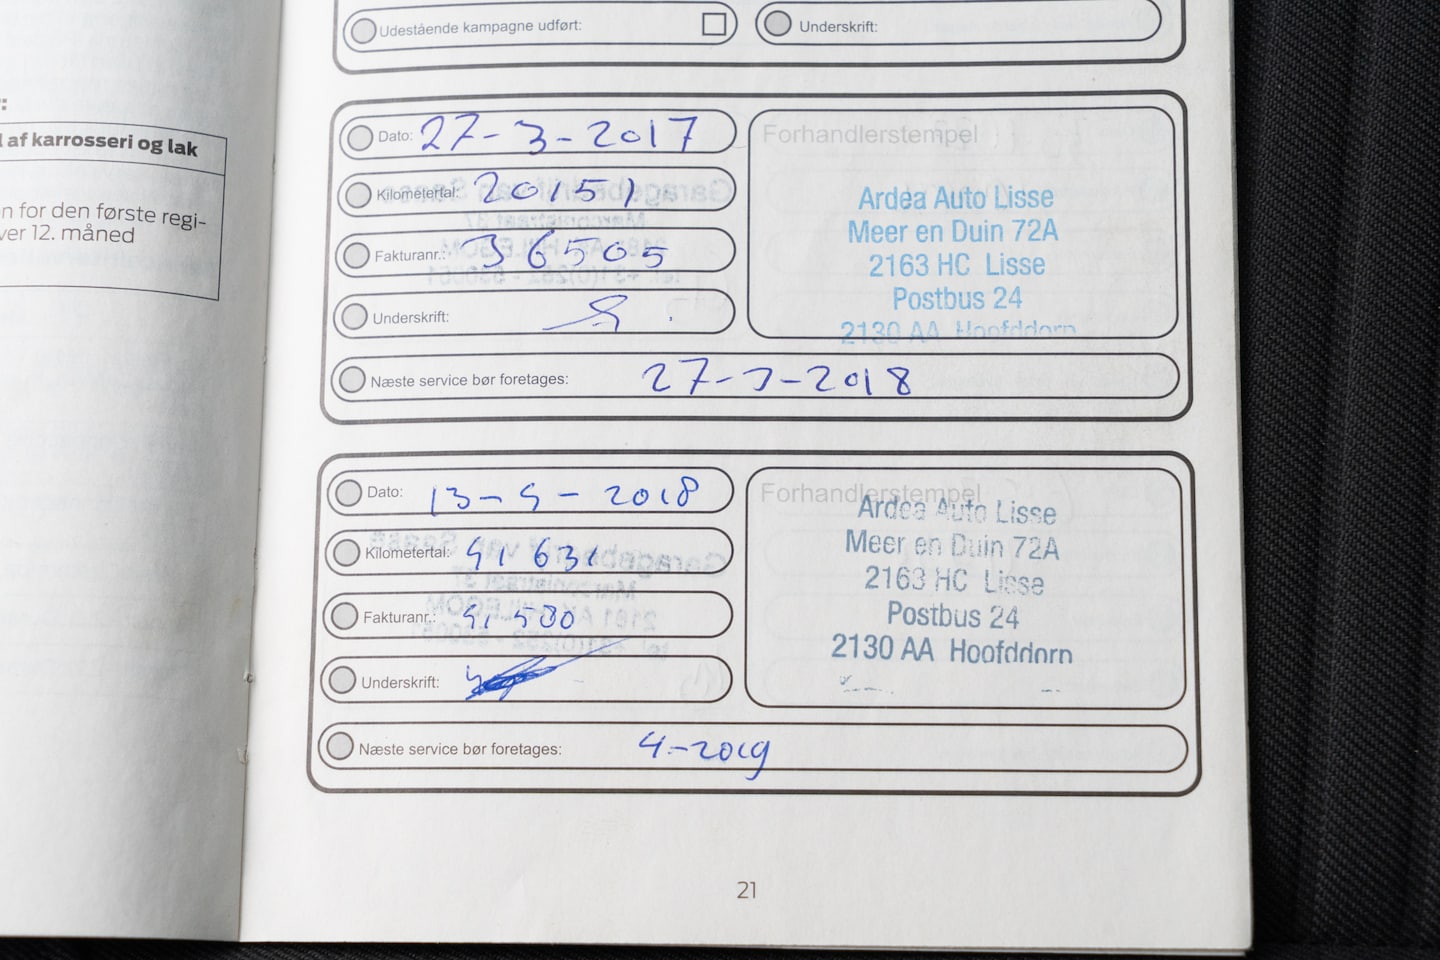 Udestående kampagne udført:
Underskrift:
:
l af karrosseri og lak
n for den første regi-
ver 12. måned
Dato: 27-3-2017
Kilometertal: 20151
Fakturanr.: 36505
Underskrift:
Forhandlerstempel
Ardea Auto Lisse
Meer en Duin 72A
2163 HC Lisse
Postbus 24
2130 AA Hoofddorp
Næste service bør foretages: 27-3-2018
Dato: 13-4-2018
Kilometertal:
Fakturanr.:
Underskrift:
Forhandlerstempel
Ardea Auto Lisse
Meer en Duin 72A
2163 HC Lisse
Postbus 24
2130 AA Hoofddorp
Næste service bør foretages: 4-2019
21